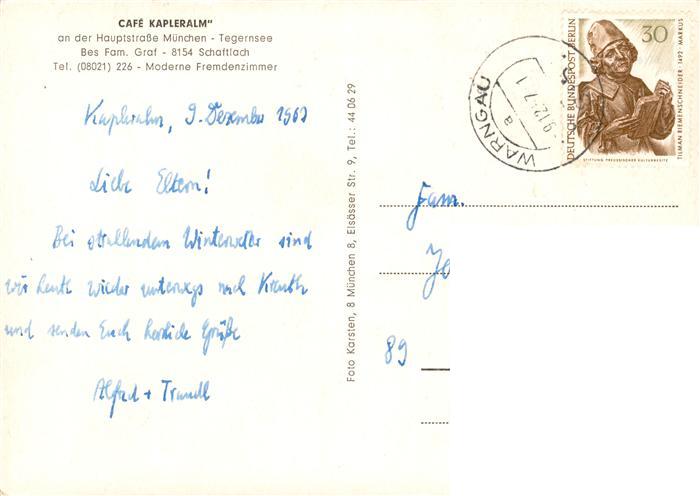 CAFÉ KAPLERALM"
an der Hauptstraße München - Tegernsee
Bes Fam. Graf - 8154 Schaftlach
Tel. (08021) 226 - Moderne Fremdenzimmer
Kapleralm, 9. Dezember 1967
Liebe Eltern!
Bei strallendem Winterwetter sind
wir heute wieder unterwegs nach Kreuth
und senden Euch herzliche Grüße
Alfred + Traudl
Foto Karsten, 8 München 8, Elsässer Str. 9, Tel.: 44 06 29
WARNGAU
a
30
DEUTSCHE BUNDESPOST BERLIN
TILMAN RIEMENSCHNEIDER · 1492 · MARKUS
STIFTUNG PREUSSISCHER KULTURBESITZ
Fam.
89